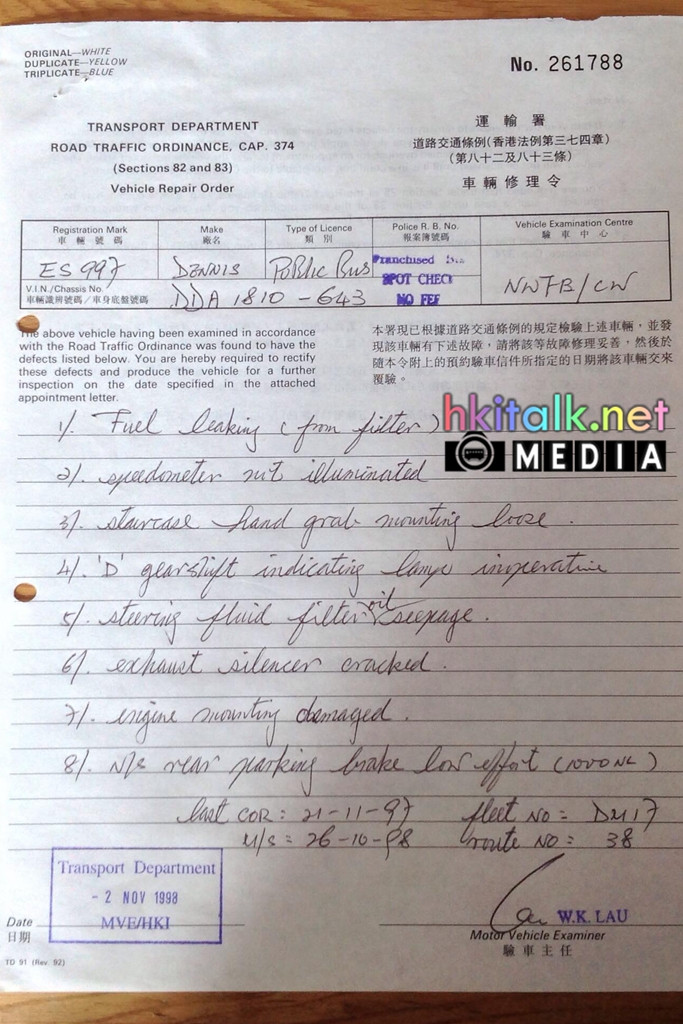 ORIGINAL—WHITE
DUPLICATE—YELLOW
TRIPLICATE—BLUE
No. 261788
TRANSPORT DEPARTMENT
ROAD TRAFFIC ORDINANCE, CAP. 374
(Sections 82 and 83)
Vehicle Repair Order
運輸署
道路交通條例(香港法例第三七四章)
(第八十二及八十三條)
車輛修理令
Registration Mark
車輛號碼
ES 997
Make
廠名
DENNIS
Type of Licence
類別
Public Bus
Police R. B. No.
報案簿號碼
Franchised Bus
SPOT CHECK
NO FEE
Vehicle Examination Centre
驗車中心
NWFB/CW
V.I.N./Chassis No.
車輛識辨號碼/車身底盤號碼
DDA 1810 - 643
The above vehicle having been examined in accordance
with the Road Traffic Ordinance was found to have the
defects listed below. You are hereby required to rectify
these defects and produce the vehicle for a further
inspection on the date specified in the attached
appointment letter.
本署現已根據道路交通條例的規定檢驗上述車輛，並發
現該車輛有下述故障，請將該等故障修理妥善，然後於
隨本令附上的預約驗車信件所指定的日期將該車輛交來
覆驗。
hkitalk.net
MEDIA
1/. Fuel leaking (from filter)
2/. speedometer not illuminated
3/. staircase hand grab mounting loose.
4/. 'D' gearshift indicating lamp inoperative
5/. steering fluid filter oil seepage.
6/. exhaust silencer cracked.
7/. engine mounting damaged.
8/. N/S rear parking brake low effort (1000 NL)
last COR: 21-11-97 fleet No = DM17
M/S = 26-10-98 route No = 38
Transport Department
- 2 NOV 1998
MVE/HKI
Date
日期
W.K. LAU
Motor Vehicle Examiner
驗車主任
TD 91 (Rev. 92)